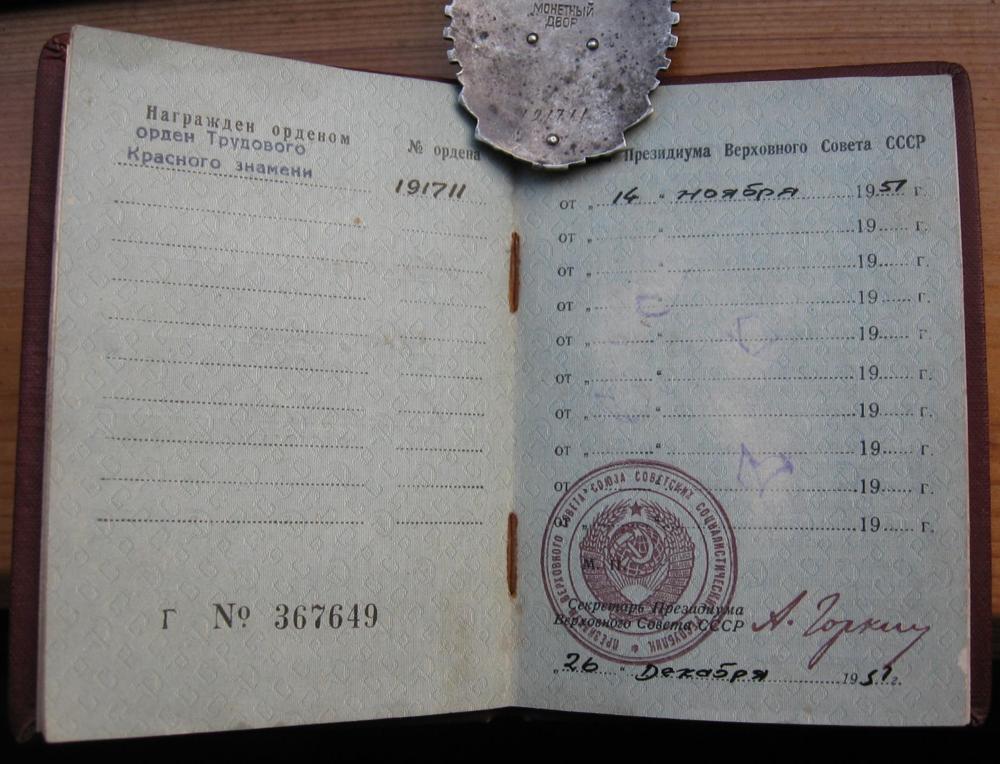 МОНЕТНЫЙ
ДВОР
191711
Награжден орденом
орден Трудового
Красного знамени
№ ордена
191711
Г № 367649
Президиума Верховного Совета СССР
от „ 14 “ ноября 1951 г.
от „ “ 19 г.
от „ “ 19 г.
от „ 19 г.
от „ “ 19 г.
от „ “ 19 г.
от „ “ 19 г.
от „ “ 19 г.
от 19 г.
19 г.
ПРЕЗИДИУМ ВЕРХОВНОГО СОВЕТА СОЮЗА СОВЕТСКИХ СОЦИАЛИСТИЧЕСКИХ РЕСПУБЛИК
М. П.
Секретарь Президиума
Верховного Совета СССР А. Горкин
„ 26 “ Декабря 1951 г.